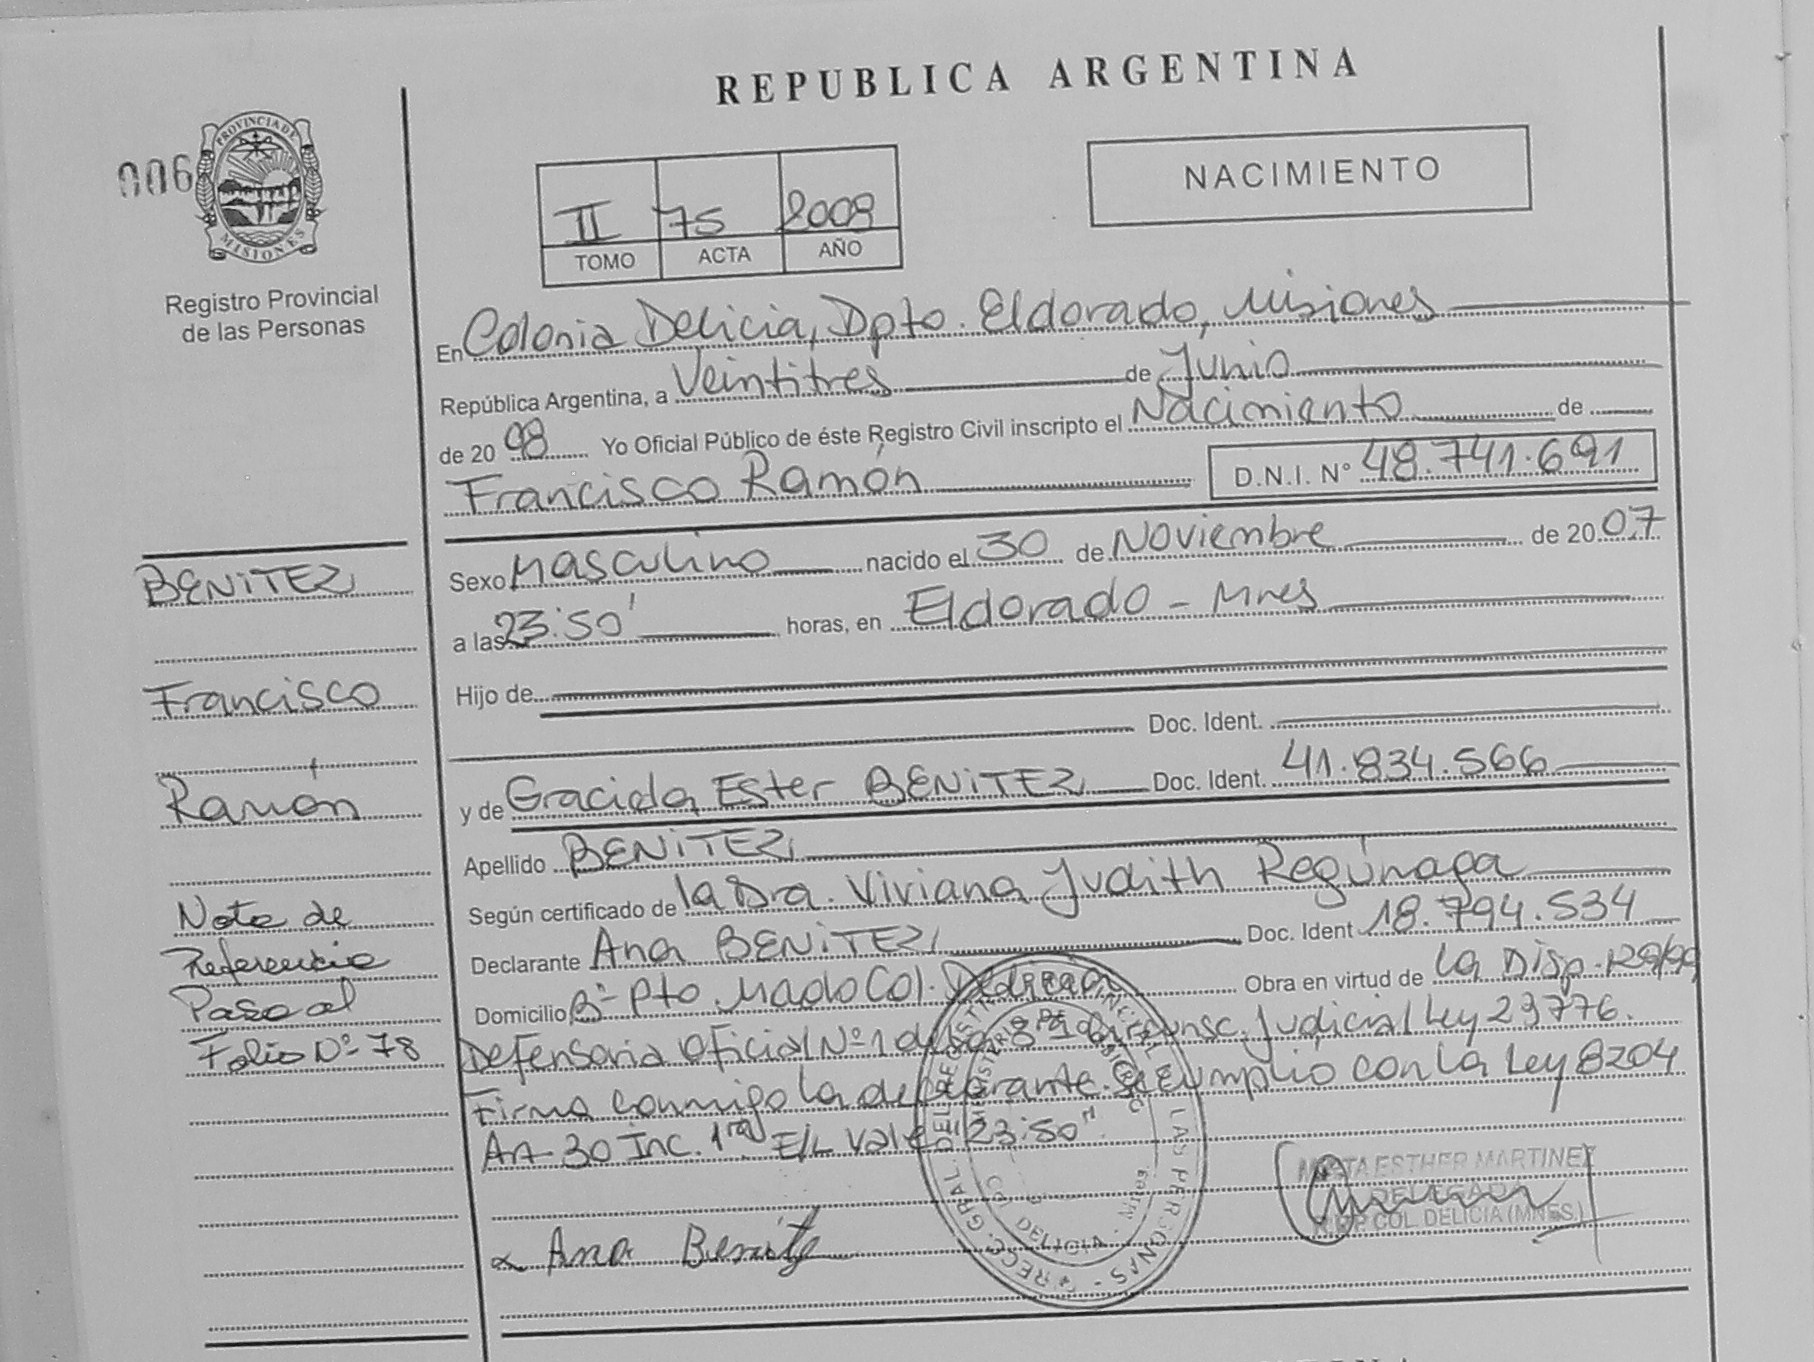 REPUBLICA ARGENTINA
006
PROVINCIA DE
MISIONES
Registro Provincial
de las Personas
NACIMIENTO
II 75 2008
TOMO ACTA AÑO
En Colonia Delicia, Dpto. Eldorado, Misiones
República Argentina, a Veintitres de Junio
de 2008 Yo Oficial Público de éste Registro Civil inscripto el Nacimiento de
Francisco Ramón D.N.I. N° 48.741.691
BENITEZ
Francisco
Ramón
Nota de
Referencia
Pasa al
Folio N° 78
Sexo Masculino nacido el 30 de Noviembre de 2007
a las 23:50' horas, en Eldorado - Mnes
Hijo de
Doc. Ident.
y de Graciela Ester BENITEZ Doc. Ident. 41.834.566
Apellido BENITEZ
Según certificado de la Dra. Viviana Judith
Declarante Ana BENITEZ Doc. Ident 18.794.534
Domicilio B° Pto. Mado Col. Delicia Obra en virtud de la Disp.
Defensoria Oficial N° 1 de la 8° Circunsc. Judicial Ley 23776.
Firma conmigo la declarante. Se cumplió con la Ley 8204
Art 30 Inc. 1ra. E/L Vale "23:50".
Ana Benitez
MIRTA ESTHER MARTINEZ
DELEGADA
R.P.P. COL. DELICIA (MNES.)